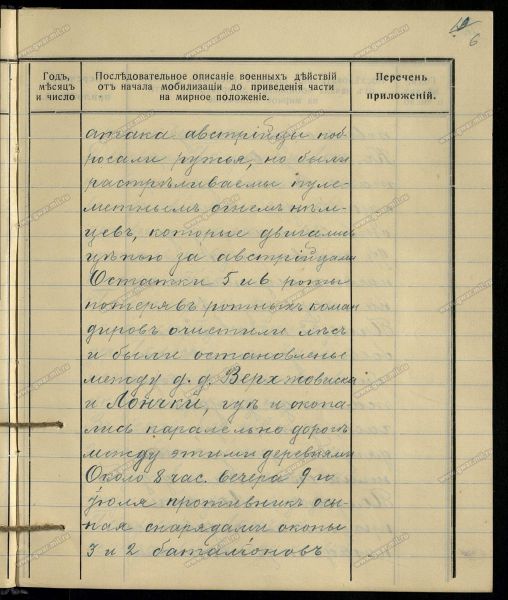 6
Годъ,
мѣсяцъ
и число
Послѣдовательное описаніе военныхъ дѣйствій
отъ начала мобилизаціи до приведенія части
на мирное положеніе.
Перечень
приложеній.
атака австрійцы поб-
росали ружья, но были
растрѣливаемы пуле-
метнымъ огнемъ нѣм-
цевъ, которые двигались
цѣпью за австрійцами
Остатки 5 и 6 роты
потерявъ ротныхъ коман
дировъ очистили лѣсъ
и были остановлены
между д. д. Верхховиска
и Лончки, гдѣ и окопа-
лись паралельно дорогѣ
между этими деревнями
Около 8 час. вечера 9 го
іюля противникъ осы-
пая снарядами окопы
3 и 2 баталіоновъ
www.gwar.mil.ru